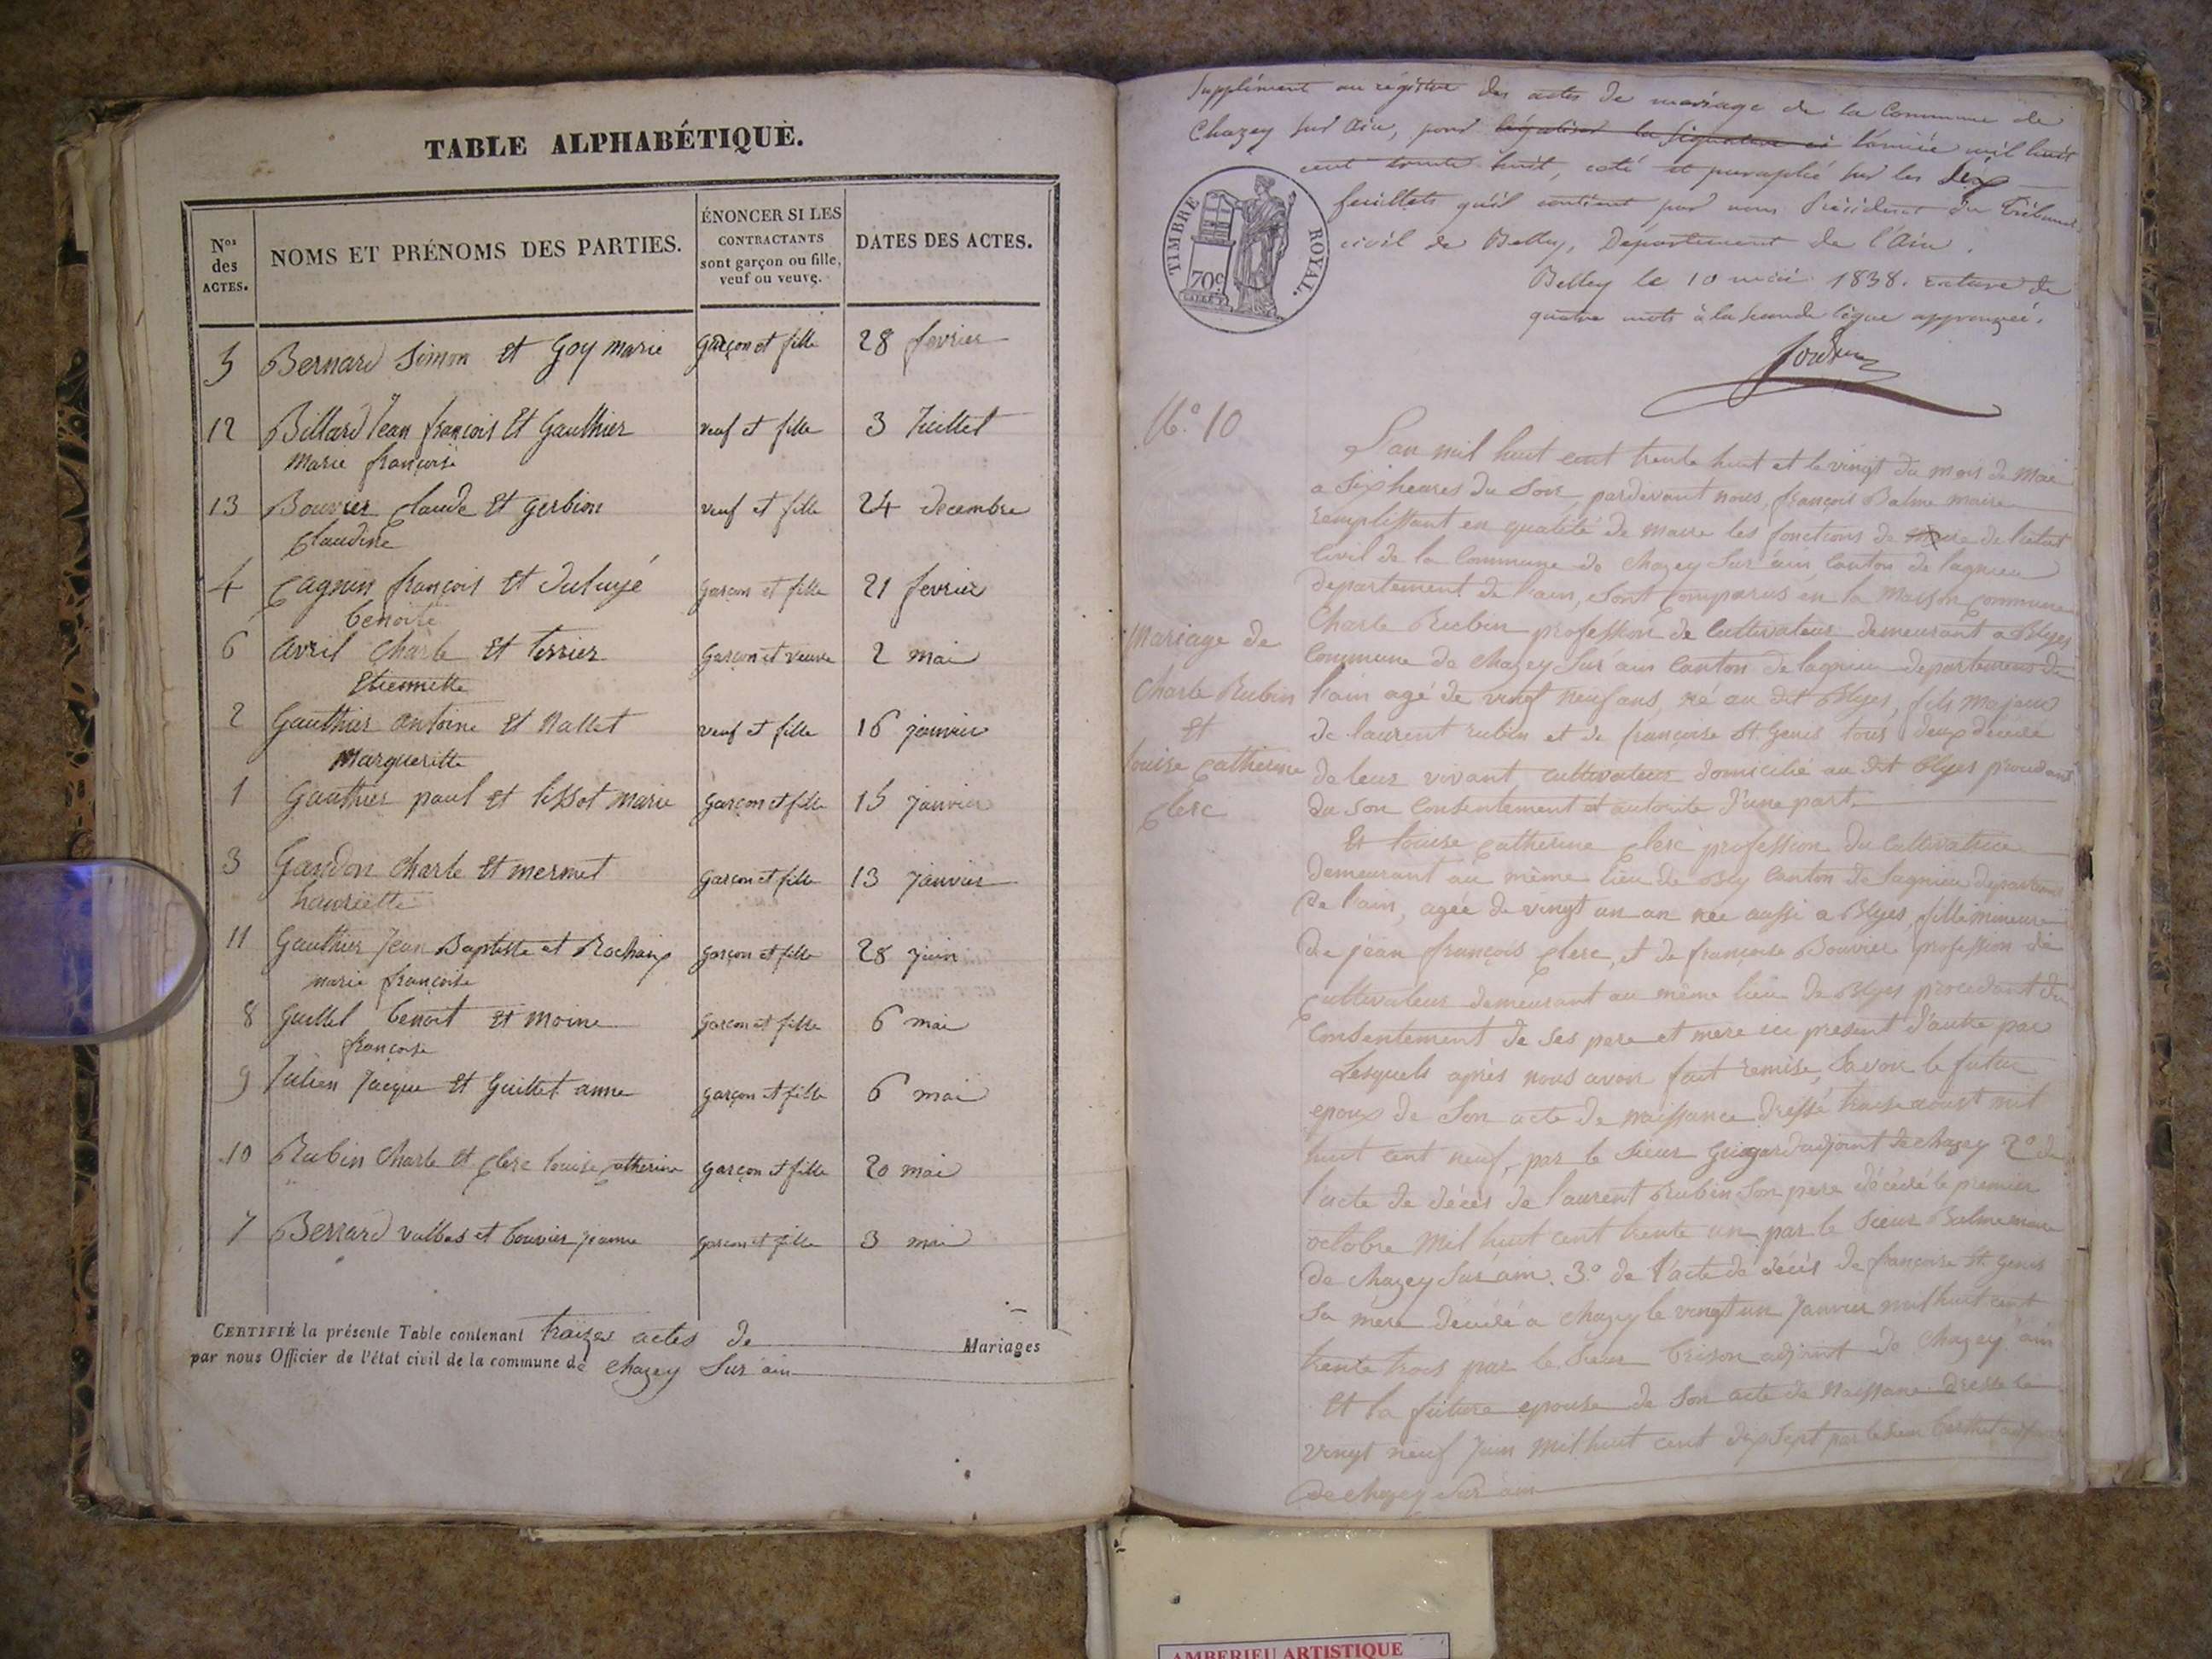 TABLE ALPHABÉTIQUE.
Nos des ACTES.
NOMS ET PRÉNOMS DES PARTIES.
ÉNONCER SI LES CONTRACTANTS sont garçon ou fille, veuf ou veuve.
DATES DES ACTES.
5 Bernard Simon et Goy marie garçon et fille 28 fevrier
12 Billard Jean françois Et Gauthier veuf et fille 3 Juillet
marie françoise
13 Bouvier Claude Et Gerbion veuf et fille 24 decembre
Claudine
4 Cagnin françois Et garçon et fille 21 fevrier
benoite
6 avril Charle Et terrier Garçon et veuve 2 mai
Etiennette
2 Gauthier antoine Et Nallet veuf et fille 16 janvier
Margueritte
1 Gauthier paul Et lissot marie garçon et fille 15 janvier
3 Gandon Charle Et mermet garçon et fille 13 janvier
henriette
11 Gauthier Jean Baptiste et Rochaix garçon et fille 28 juin
marie françoise
8 Guillet benoit Et moine garçon et fille 6 mai
françoise
9 Julien Jacque Et Guillet anne garçon et fille 6 mai
10 Rubin Charle Et Clerc louise Catherine garçon et fille 20 mai
7 Berrard valbas et bouvier jeanne garçon et fille 3 mai
CERTIFIÉ la présente Table contenant traizes actes de Mariages
par nous Officier de l'état civil de la commune de Chazey Sur ain
Supplément au régistre des actes de mariage de la Commune de
Chazey sur Ain, pour légaliser la signature ci l'année mil huit
cent trente huit, coté et paraphé sur les dix
feuillets qu'il contient par nous Président du Tribunal
civil de Belley, Département de l'Ain.
Belley le 10 mai 1838. rature de
quatre mots à la seconde ligne approuvée.
TIMBRE ROYAL.
70c
N.° 10
Mariage de
Charle Rubin
et
louise Catherine
Clerc
L'an mil huit cent trente huit et le vingt du mois de Mai
a Six heures du Soir pardevant nous, françois Balme maire
remplissant en qualité de maire les fonctions de maire de l'etat
Civil de la Commune de Chazey Sur ain, Canton de lagnieu
departement de l'ain, Sont Comparus en la maison Commune
Charle Rubin profession de Cultivateur demeurant a Blyes
Commune de Chazey Sur ain Canton de lagnieu departement de
l'ain agé de vingt neuf ans, né au dit Blyes, fils majeur
de laurent rubin et de françoise St Genis tous deux décédé
de leur vivant cultivateur domicilié au dit Blyes procedant
du son Consentement et autorite d'une part.
Et louise Catherine Clerc profession du Cultivatrice
demeurant au même lieu de Bly Canton de lagnieu departement
de l'ain, agée de vingt un an née aussi a Blyes, fille mineure
de jean françois Clerc, et de françoise Bouvier profession de
Cultivateur demeurant au même lieu de Blyes procedant du
Consentement de Ses pere et mere ici present d'autre par
Lesquels après nous avoir fait remise, Savoir le futur
epoux de Son acte de naissance dressé traize aoust mil
huit cent neuf, par le Sieur adjoint de chazey 2° de
l'acte de décés de laurent Rubin Son pere décédé le premier
octobre mil huit cent trente un par le Sieur Balme maire
de Chazey Sur ain. 3° de l'acte de décés de françoise St Genis
Sa mere décédé a Chazey le vingt un Janvier mil huit cent
trente trois par le Sieur brison adjoint de Chazey ain
Et la future epouse de Son acte de Naissance dressé le
vingt neuf Juin mil huit cent dix Sept par le Sieur
de chazey Sur ain
AMBERIEU ARTISTIQUE